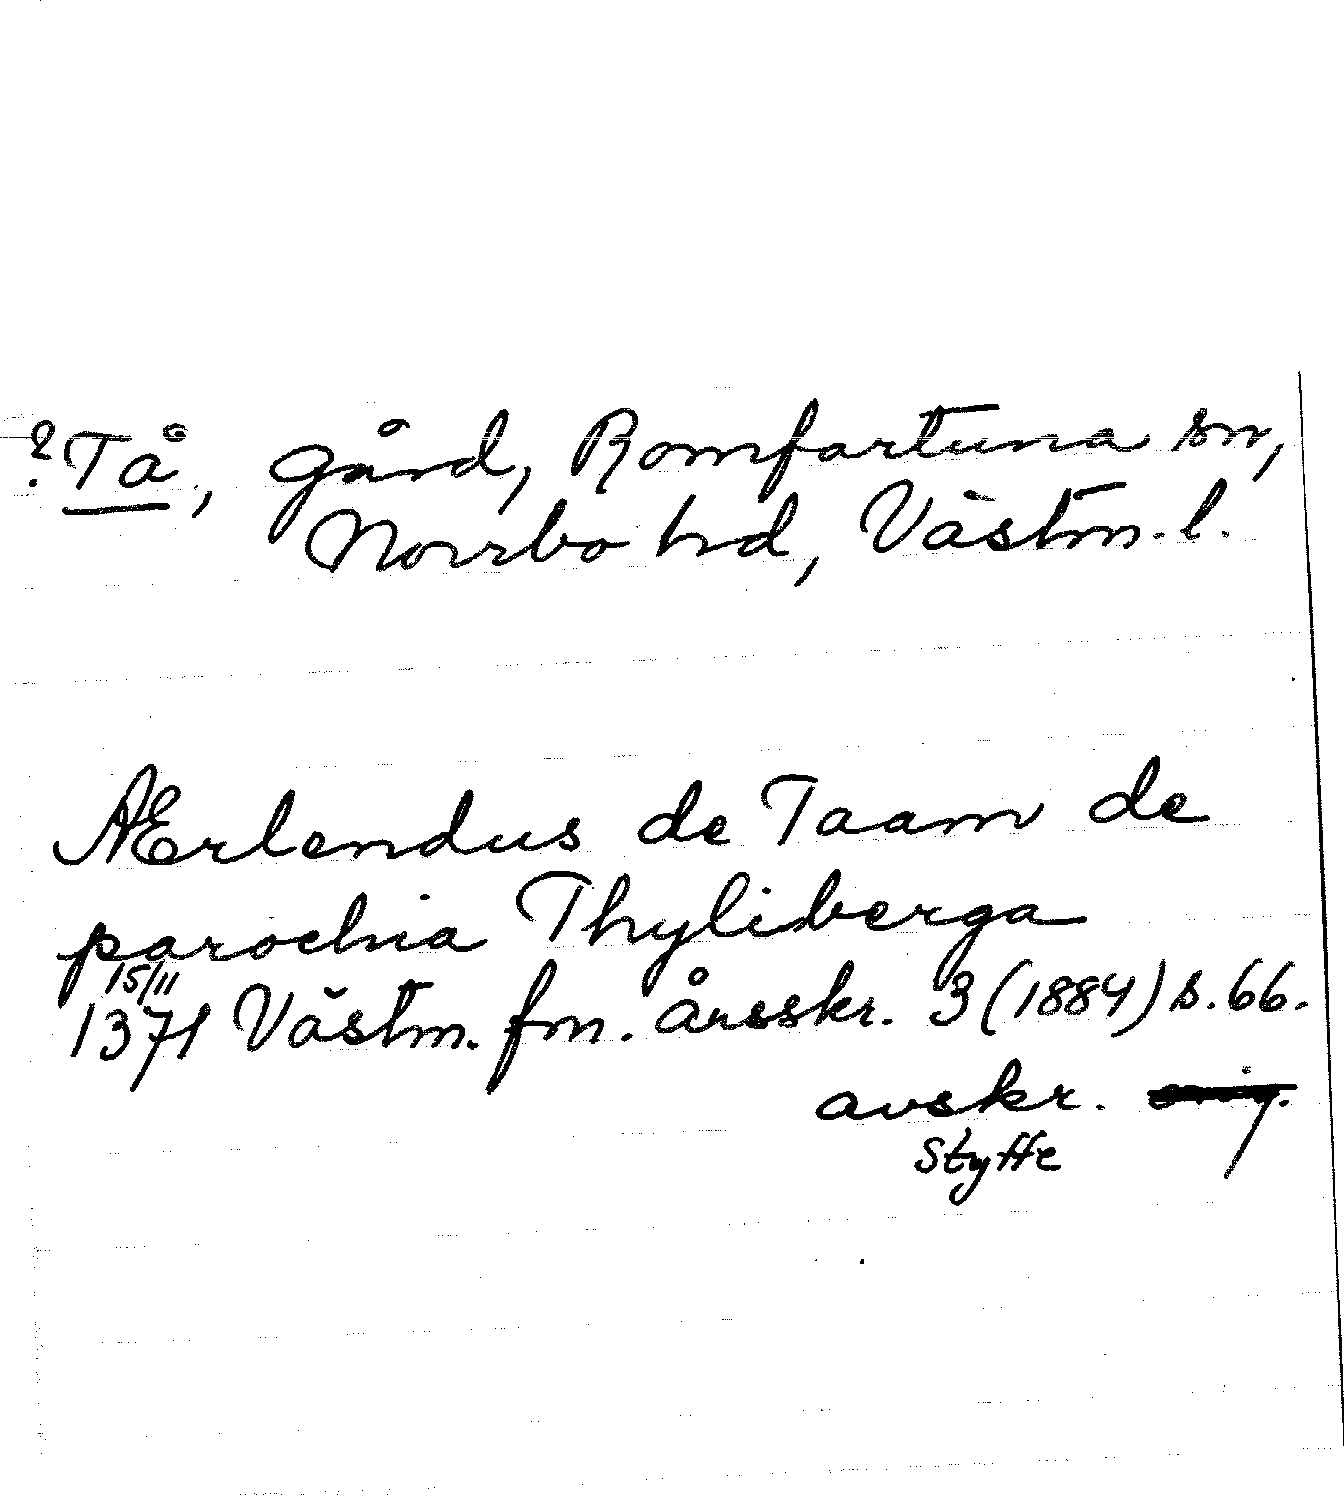 ? Tå, gård, Romfartuna sn,
Norrbo hd, Västm. l.
Ærlendus de Taam de
parochia Thyliberga
15/11
1371 Västm. fm. årsskr. 3 (1884) s. 66.
avskr.
Styffe